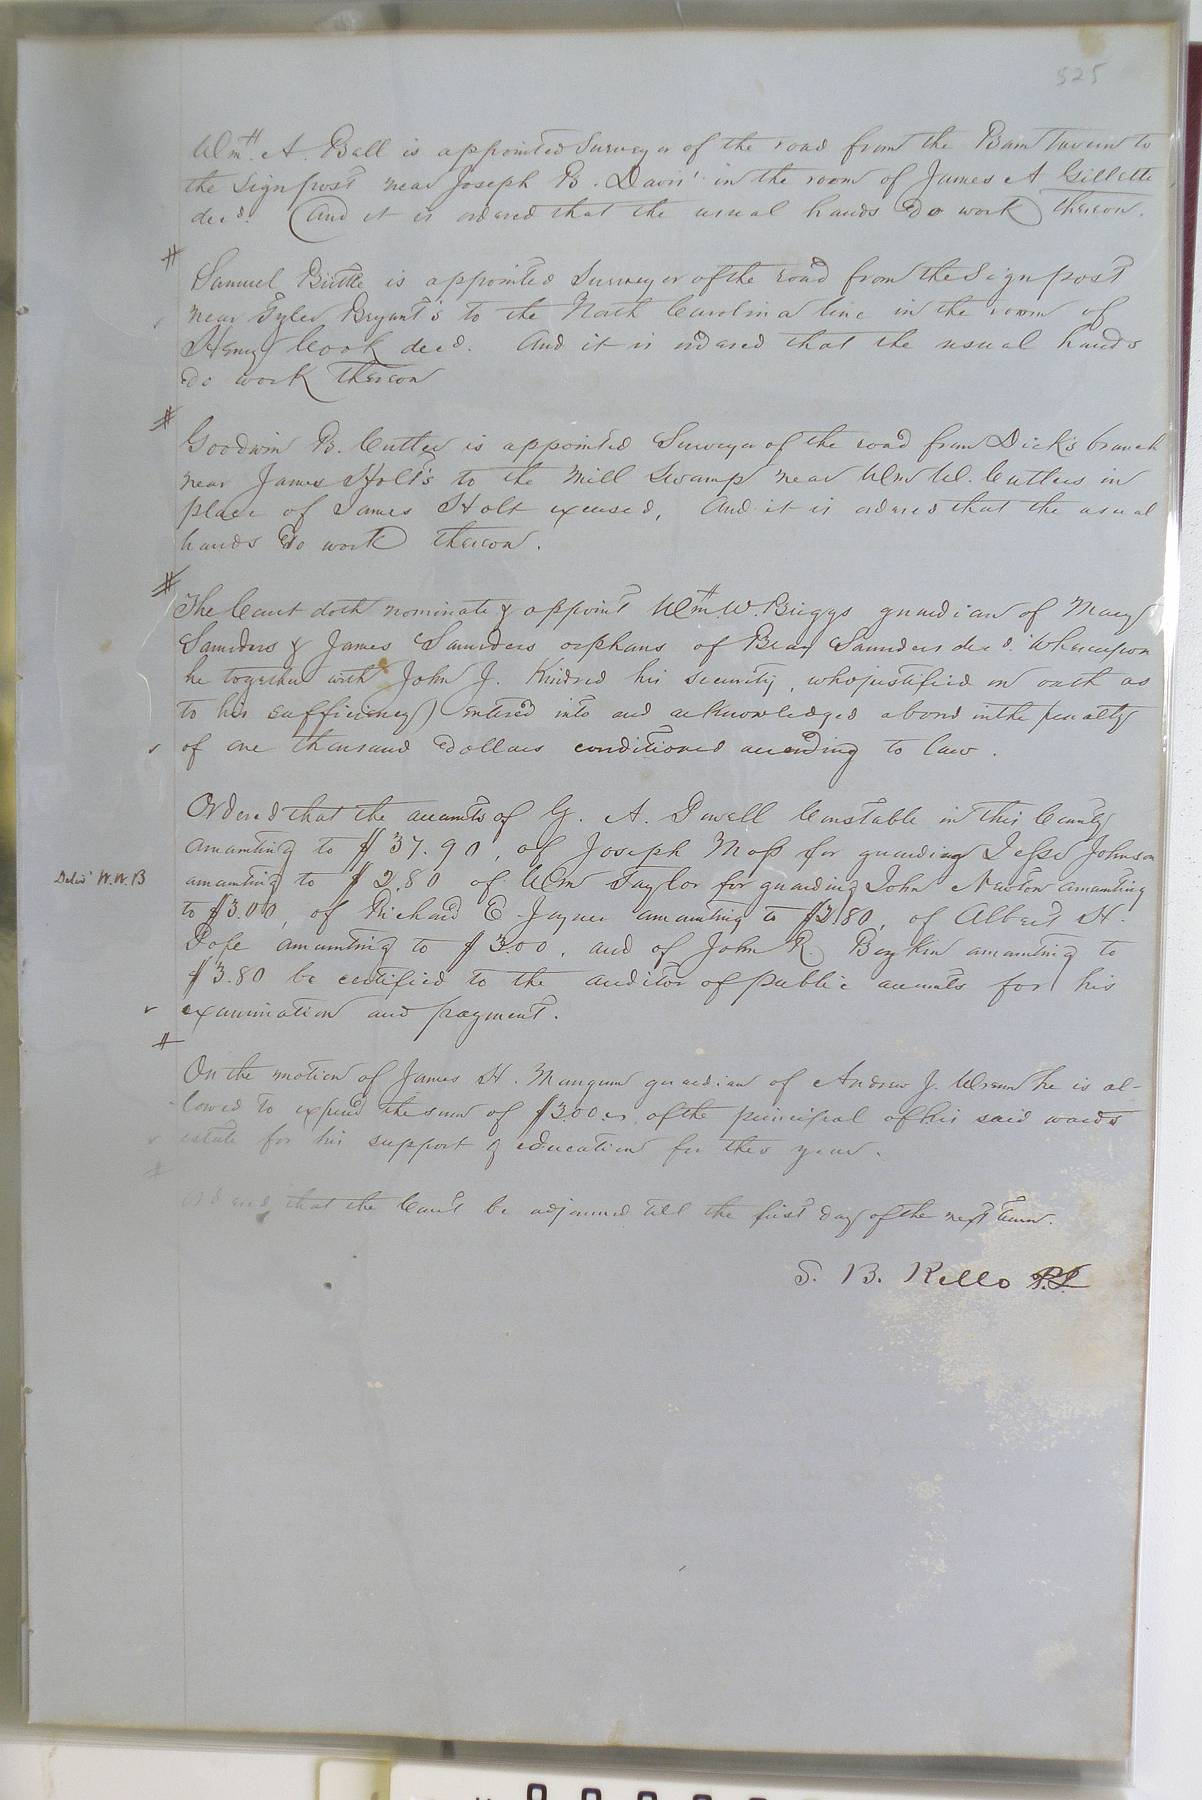 525
Wm. A. Ball is appointed Surveyor of the road from the Barn Tavern to
the Sign post near Joseph B. Davis' in the room of James A Gillette
decd. And it is ordered that the usual hands do work thereon.
#
Samuel Buttle is appointed Surveyor of the road from the Sign post
near Tyler Bryant's to the North Carolina line in the room of
Henry Cook decd. And it is ordered that the usual hands
do work thereon
#
Goodwin B. Cutler is appointed Surveyor of the road from Dick's branch
near James Holt's to the Mill Swamp near Wm W. Cutlers in
place of James Holt excused. And it is ordered that the usual
hands do work thereon.
#
The Court doth nominate & appoint Wm. W. Briggs guardian of Mary
Saunders & James Saunders orphans of Saunders decd. Whereupon
he together with John J. Kindred his security, who justified on oath as
to his sufficiency entered into and acknowledged a bond in the penalty
of one thousand dollars conditioned according to law.
Ordered that the accounts of G. A. Dowell Constable in this County
amounting to $37.90, of Joseph Moss for guarding Jesse Johnson
Deld W.W.B
amounting to $2.80 of Wm Taylor for guarding John Newton amounting
to $3.00, of Richard E. Joyner amounting to $2.80, of Albert H.
Pope amounting to $3.00, and of John R. Boykin amounting to
$3.80 be certified to the auditor of public accounts for his
examination and payment.
#
On the motion of James H. Mangum guardian of Andrew J. Wrenn he is al-
lowed to expend the sum of of the principal of his said wards
estate for his support & education for this year.
#
Ordered that the Court be adjourned till the first day of the next term.
S. B. Kello P.J.